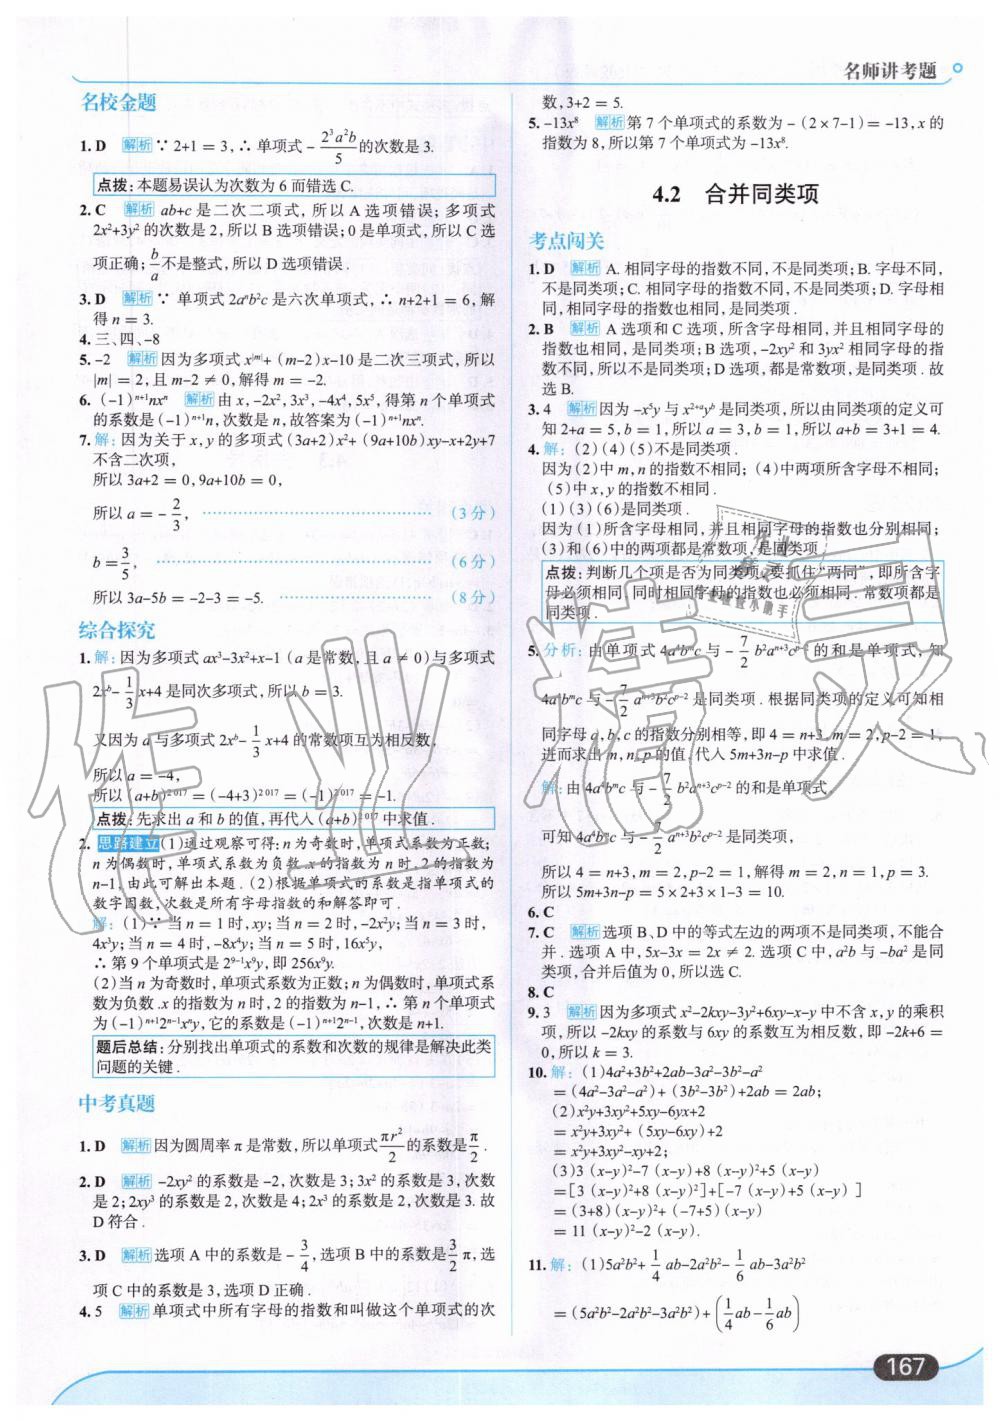 名师讲考题
名校金题
1. D 解析 ∵ 2+1 = 3，∴ 单项式 -2³a²b/5 的次数是 3.
点拨：本题易误认为次数为 6 而错选 C.
2. C 解析 ab+c 是二次二项式，所以 A 选项错误；多项式
2x²+3y² 的次数是 2，所以 B 选项错误；0 是单项式，所以 C 选
项正确；b/a 不是整式，所以 D 选项错误.
3. D 解析 ∵ 单项式 2aⁿb²c 是六次单项式，∴ n+2+1 = 6，解
得 n = 3.
4. 三、四、-8
5. -2 解析 因为多项式 x^|m|+（m-2）x-10 是二次三项式，所以
|m| = 2，且 m-2 ≠ 0，解得 m = -2.
6.（-1）ⁿ⁺¹nxⁿ 解析 由 x，-2x²，3x³，-4x⁴，5x⁵，得第 n 个单项式
的系数是（-1）ⁿ⁺¹n，次数是 n，故答案为（-1）ⁿ⁺¹nxⁿ.
7. 解：因为关于 x，y 的多项式（3a+2）x²+（9a+10b）xy-x+2y+7
不含二次项，
所以 3a+2 = 0，9a+10b = 0，
所以 a = -2/3，……（3 分）
b = 3/5，……（6 分）
所以 3a-5b = -2-3 = -5. ……（8 分）
综合探究
1. 解：因为多项式 ax³-3x²+x-1（a 是常数，且 a ≠ 0）与多项式
2xᵇ-1/3x+4 是同次多项式，所以 b = 3.
又因为 a 与多项式 2xᵇ-1/3x+4 的常数项互为相反数，
所以 a = -4，
所以（a+b）²⁰¹⁷ =（-4+3）²⁰¹⁷ =（-1）²⁰¹⁷ = -1.
点拨：先求出 a 和 b 的值，再代入（a+b）²⁰¹⁷ 中求值.
2. 思路建立（1）通过观察可得：n 为奇数时，单项式系数为正数；
n 为偶数时，单项式系数为负数. x 的指数为 n 时，2 的指数为
n-1，由此可解出本题.（2）根据单项式的系数是指单项式的
数字因数，次数是所有字母指数的和解答即可.
解：（1）∵ 当 n = 1 时，xy；当 n = 2 时，-2x²y；当 n = 3 时，
4x³y；当 n = 4 时，-8x⁴y；当 n = 5 时，16x⁵y，
∴ 第 9 个单项式是 2⁹⁻¹x⁹y，即 256x⁹y.
（2）当 n 为奇数时，单项式系数为正数；n 为偶数时，单项式系
数为负数. x 的指数为 n 时，2 的指数为 n-1，∴ 第 n 个单项式
为（-1）ⁿ⁺¹2ⁿ⁻¹xⁿy，它的系数是（-1）ⁿ⁺¹2ⁿ⁻¹，次数是 n+1.
题后总结：分别找出单项式的系数和次数的规律是解决此类
问题的关键.
中考真题
1. D 解析 因为圆周率 π 是常数，所以单项式 πr²/2 的系数是 π/2.
2. D 解析 -2xy² 的系数是 -2，次数是 3；3x² 的系数是 3，次数
是 2；2xy³ 的系数是 2，次数是 4；2x³ 的系数是 2，次数是 3. 故
D 符合.
3. D 解析 选项 A 中的系数是 -3/4，选项 B 中的系数是 3/2π，选
项 C 中的系数是 3，选项 D 正确.
4. 5 解析 单项式中所有字母的指数和叫做这个单项式的次
数，3+2 = 5.
5. -13x⁸ 解析 第 7 个单项式的系数为 -（2×7-1）= -13，x 的
指数为 8，所以第 7 个单项式为 -13x⁸.
4.2 合并同类项
考点闯关
1. D 解析 A. 相同字母的指数不同，不是同类项；B. 字母不同，
不是同类项；C. 相同字母的指数不同，不是同类项；D. 字母相
同，相同字母的指数也相同，是同类项.
2. B 解析 A 选项和 C 选项，所含字母相同，并且相同字母的
指数也相同，是同类项；B 选项，-2xy² 和 3yx² 相同字母的指
数不同，所以不是同类项；D 选项，都是常数项，是同类项. 故
选 B.
3. 4 解析 因为 -x⁵y 与 x²⁺ᵃyᵇ 是同类项，所以由同类项的定义可
知 2+a = 5，b = 1，所以 a = 3，b = 1，所以 a+b = 3+1 = 4.
4. 解：（2）（4）（5）不是同类项.
因为（2）中 m，n 的指数不相同；（4）中两项所含字母不相同；
（5）中 x，y 的指数不相同.
（1）（3）（6）是同类项.
因为（1）所含字母相同，并且相同字母的指数也分别相同；
（3）和（6）中的两项都是常数项，是同类项.
点拨：判断几个项是否为同类项，要抓住“两同”，即所含字
母必须相同，同时相同字母的指数也必须相同. 常数项都是
同类项.
5. 分析：由单项式 4a⁴bᵐc 与 -7/2b²aⁿ⁺³cᵖ⁻² 的和是单项式，知
4a⁴bᵐc 与 -7/2aⁿ⁺³b²cᵖ⁻² 是同类项. 根据同类项的定义可知相
同字母 a，b，c 的指数分别相等，即 4 = n+3，m = 2，p-2 = 1，
进而求出 m，n，p 的值，代入 5m+3n-p 中求值.
解：由 4a⁴bᵐc 与 -7/2b²aⁿ⁺³cᵖ⁻² 的和是单项式，
可知 4a⁴bᵐc 与 -7/2aⁿ⁺³b²cᵖ⁻² 是同类项，
所以 4 = n+3，m = 2，p-2 = 1，解得 m = 2，n = 1，p = 3.
所以 5m+3n-p = 5×2+3×1-3 = 10.
6. C
7. C 解析 选项 B、D 中的等式左边的两项不是同类项，不能合
并. 选项 A 中，5x-3x = 2x ≠ 2. 选项 C 中，a²b 与 -ba² 是同
类项，合并后值为 0，所以选 C.
8. C
9. 3 解析 因为多项式 x²-2kxy-3y²+6xy-x-y 中不含 x，y 的乘积
项，所以 -2kxy 的系数与 6xy 的系数互为相反数，即 -2k+6 =
0，所以 k = 3.
10. 解：（1）4a²+3b²+2ab-3a²-3b²-a²
=（4a²-3a²-a²）+（3b²-3b²）+2ab = 2ab；
（2）x²y+3xy²+5xy-6yx+2
= x²y+3xy²+（5xy-6xy）+2
= x²y+3xy²-xy+2；
（3）3（x-y）²-7（x-y）+8（x-y）²+5（x-y）
=［3（x-y）²+8（x-y）²］+［-7（x-y）+5（x-y）］
=（3+8）（x-y）²+（-7+5）（x-y）
= 11（x-y）²-2（x-y）.
11. 解：（1）5a²b²+1/4ab-2a²b²-1/6ab-3a²b²
=（5a²b²-2a²b²-3a²b²）+（1/4ab-1/6ab）
167
作业精灵